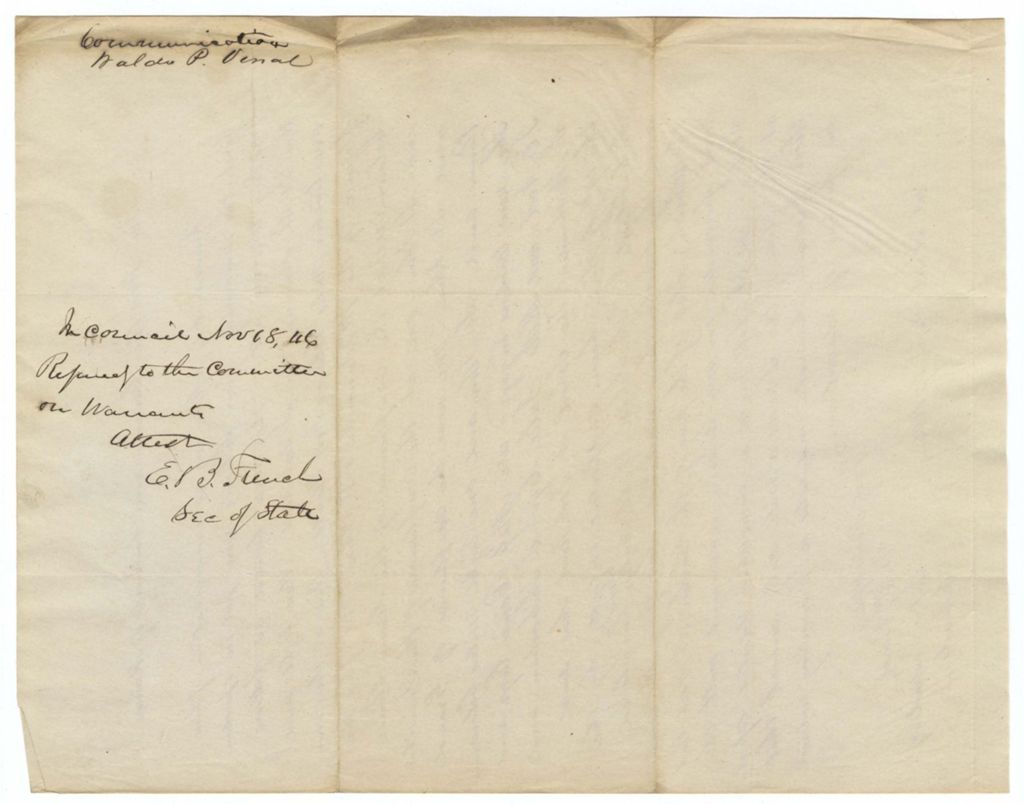 Communication
Waldo P. Vinal
In Council Nov 18, 46
Referred to the Committee
on Warrants
Attest
E. B. French
Sec of State